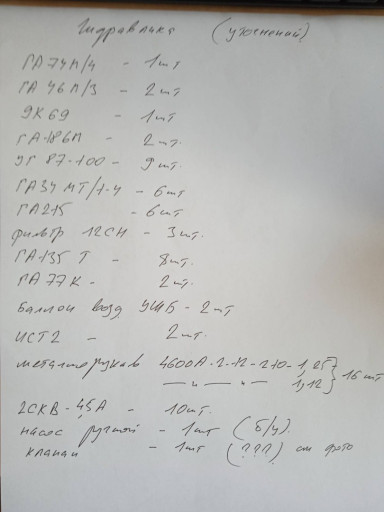 Гидравлика (уточнений)
ГА 74М/4 - 1шт
ГА 46М/3 - 2шт
ЭК 69 - 1шт
ГА-186М - 2шт.
УГ 87-100 - 9шт.
ГА34 МТ/1-4 - 6шт
ГА215 - 6шт
фильтр 12СН - 3шт.
ГА-135 Т - 8шт.
ГА 77К - 2шт.
Баллон возд УШБ - 2шт
ИСТ2 - 2шт.
металлорукав 4600А-2-12-210-1,25 } 16шт
— " — " — 1,12
2СКВ-4,5А - 10шт.
насос ручной - 1шт (б/у).
клапан - 1шт (???) см фото